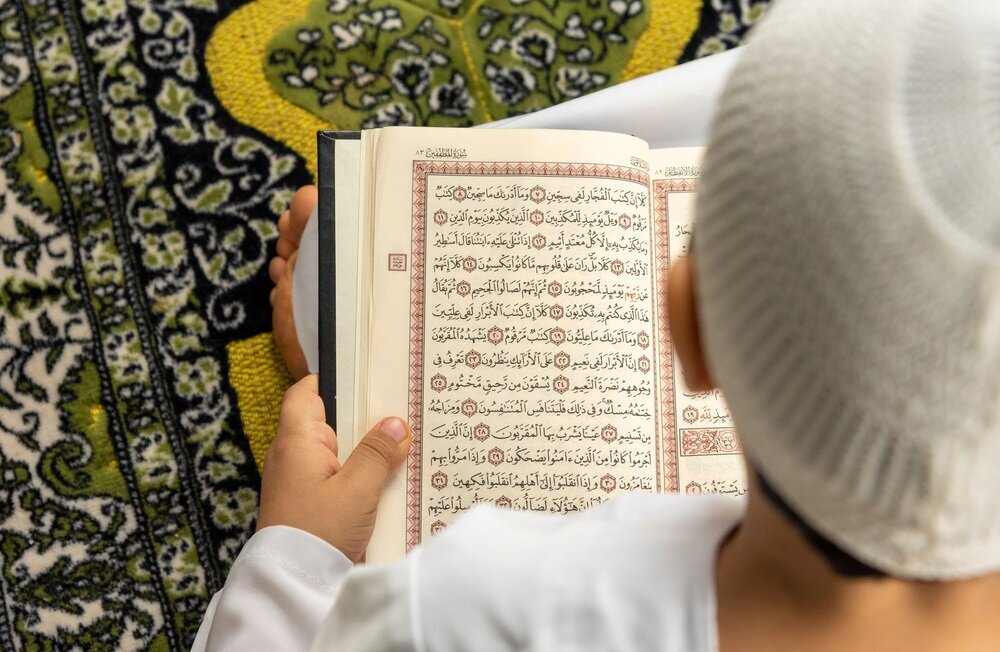 سُورَةُ المُطَفِّفِينَ ٨٣
كَلَّآ إِنَّ كِتَٰبَ ٱلْفُجَّارِ لَفِى سِجِّينٍ ٧ وَمَآ أَدْرَىٰكَ مَا سِجِّينٌ ٨ كِتَٰبٌ
مَّرْقُومٌ ٩ وَيْلٌ يَوْمَئِذٍ لِّلْمُكَذِّبِينَ ١٠ ٱلَّذِينَ يُكَذِّبُونَ بِيَوْمِ ٱلدِّينِ ١١
وَمَا يُكَذِّبُ بِهِۦٓ إِلَّا كُلُّ مُعْتَدٍ أَثِيمٍ ١٢ إِذَا تُتْلَىٰ عَلَيْهِ ءَايَٰتُنَا قَالَ أَسَٰطِيرُ
ٱلْأَوَّلِينَ ١٣ كَلَّا بَلْ رَانَ عَلَىٰ قُلُوبِهِم مَّا كَانُوا۟ يَكْسِبُونَ ١٤ كَلَّآ إِنَّهُمْ
عَن رَّبِّهِمْ يَوْمَئِذٍ لَّمَحْجُوبُونَ ١٥ ثُمَّ إِنَّهُمْ لَصَالُوا۟ ٱلْجَحِيمِ ١٦ ثُمَّ يُقَالُ
هَٰذَا ٱلَّذِى كُنتُم بِهِۦ تُكَذِّبُونَ ١٧ كَلَّآ إِنَّ كِتَٰبَ ٱلْأَبْرَارِ لَفِى عِلِّيِّينَ
١٨ وَمَآ أَدْرَىٰكَ مَا عِلِّيُّونَ ١٩ كِتَٰبٌ مَّرْقُومٌ ٢٠ يَشْهَدُهُ ٱلْمُقَرَّبُونَ
٢١ إِنَّ ٱلْأَبْرَارَ لَفِى نَعِيمٍ ٢٢ عَلَى ٱلْأَرَآئِكِ يَنظُرُونَ ٢٣ تَعْرِفُ فِى
وُجُوهِهِمْ نَضْرَةَ ٱلنَّعِيمِ ٢٤ يُسْقَوْنَ مِن رَّحِيقٍ مَّخْتُومٍ ٢٥
خِتَٰمُهُۥ مِسْكٌ وَفِى ذَٰلِكَ فَلْيَتَنَافَسِ ٱلْمُتَنَٰفِسُونَ ٢٦ وَمِزَاجُهُۥ
مِن تَسْنِيمٍ ٢٧ عَيْنًا يَشْرَبُ بِهَا ٱلْمُقَرَّبُونَ ٢٨ إِنَّ ٱلَّذِينَ
أَجْرَمُوا۟ كَانُوا۟ مِنَ ٱلَّذِينَ ءَامَنُوا۟ يَضْحَكُونَ ٢٩ وَإِذَا مَرُّوا۟ بِهِمْ
يَتَغَامَزُونَ ٣٠ وَإِذَا ٱنقَلَبُوٓا۟ إِلَىٰٓ أَهْلِهِمُ ٱنقَلَبُوا۟ فَكِهِينَ ٣١
إِنَّ هَٰٓؤُلَآءِ لَضَآلُّونَ ٣٢ أُرْسِلُوا۟ عَلَيْهِمْ